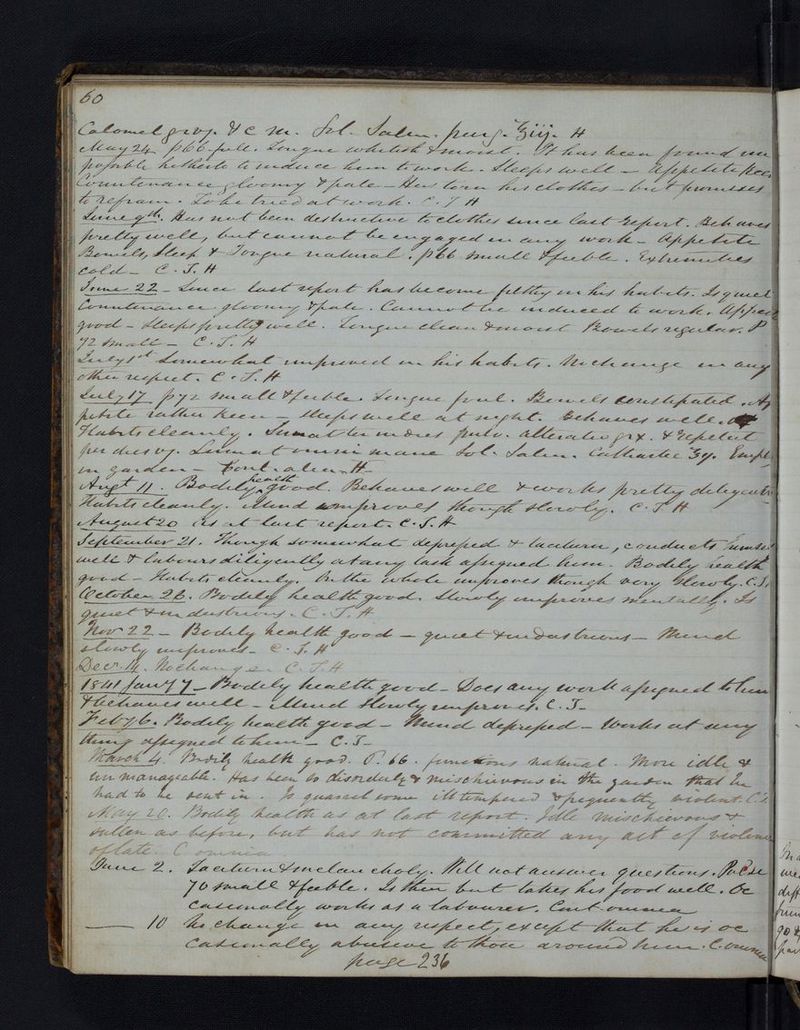 60
Calomel grvj. H C M. Sol. Salin. purg. ℥iij. H
May 24. P66 full. Tongue whitish & moist. It has been found im
possible hitherto to induce him to work. Sleeps well – Appetite keen
Countenance gloomy & pale – Has torn his clothes – but promises
to refrain. To be tried at work. C. T H
June 9th. Has not been destructive to clothes since last report. Behaves
pretty well, but cannot be engaged in any work – Appetite
Bowels, Sleep & Tongue natural. P66 small & feeble. Extremities
cold – C. T. H
June 22 – Since last report has become filthy in his habits. Is quiet
Countenance gloomy & pale. Cannot be induced to work. Appetite
good – Sleeps pretty well. Tongue clean & moist Bowels regular. P
72 small – C. T. H
July 1st Somewhat improved in his habits. No change in any
other respect. C. T. H
July 17 P72 small & feeble. Tongue foul. Bowels constipated. Ap
petite rather keen – sleeps well at night. Behaves well.
Habits cleanly. Sumat ter in dies pulv. alterativ grx. & repetat
per dies vj. Sumat omni mane Sol. Salin. Cathartic ℥j. Empl
in garden – Cont. alia. H
Augt 11. Bodily health good. Behaves well & works pretty diligently
Habits cleanly. Mind improves though slowly. C. T H
August 20 as at last report. C. T. H
September 21. Though somewhat depressed & taciturn, conducts himself
well & labours diligently at any task assigned him. Bodily health
good – Habits cleanly. On the whole improves though very slowly. C. T.
October 26. Bodily health good. Slowly improves mentally. Is
quiet & industrious. C. T. H
Nov 22 – Bodily health good – quiet & industrious – Mind
slowly improves – C. T. H
Decr. 14. No change C. T. H
1841 Jany 7 – Bodily health good – Does any work assigned to him
& behaves well – Mind slowly improves. C. T –
Feby 6. Bodily health good – Mind depressed – Works at any
thing assigned to him – C. T –
March 4. Bodily health good. P. 66. functions natural. More idle &
unmanageable. Has been so disorderly & mischievous in the garden that he
had to be sent in. Is quarrelsome ill tempered & frequently violent. C. T.
May 20. Bodily health as at last report. Idle mischievous &
sullen as before, but has not committed any act of violence
of late. C omnia
June 2. Taciturn & melancholy. Will not answer questions. Pulse
70 small & feeble. Is thin but takes his food well. Oc
casionally works as a labourer. Cont omnia
—— 10 No change in any respect, except that he is oc
casionally abusive to those around him. C. omnia
page 236